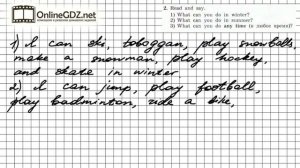 OnlineGDZ.net
2. Read and say.
1) What can you do in winter?
2) What can you do in summer?
3) What can you do any time (в любое время)?
1) I can ski, toboggan, play snowballs,
make a snowman, play hockey,
and skate in winter
2) I can jump, play football,
play badminton, ride a bike,